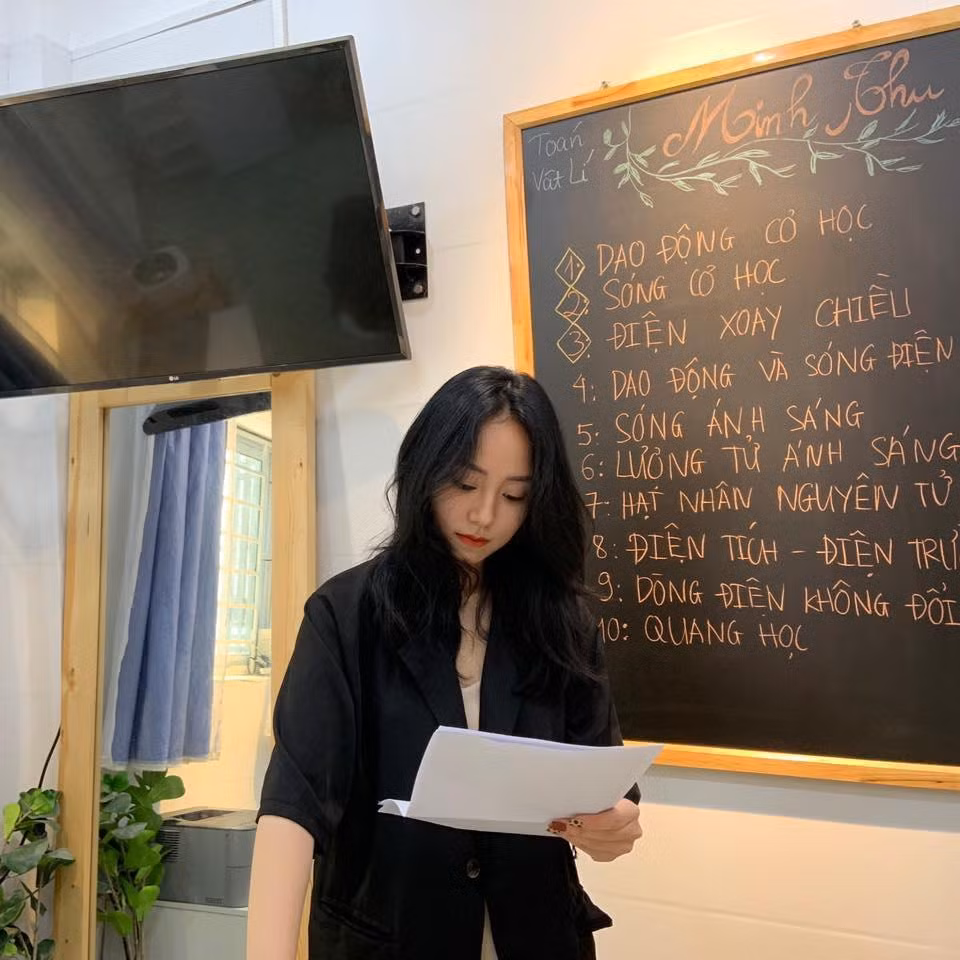 LG
Minh Thu
Toán
Vật Lí
1. DAO ĐỘNG CƠ HỌC
2. SÓNG CƠ HỌC
3. ĐIỆN XOAY CHIỀU
4: DAO ĐỘNG VÀ SÓNG ĐIỆN
5: SÓNG ÁNH SÁNG
6: LƯỢNG TỬ ÁNH SÁNG
7: HẠT NHÂN NGUYÊN TỬ
8: ĐIỆN TÍCH - ĐIỆN TRƯ
9: DÒNG ĐIỆN KHÔNG ĐỔI
10: QUANG HỌC